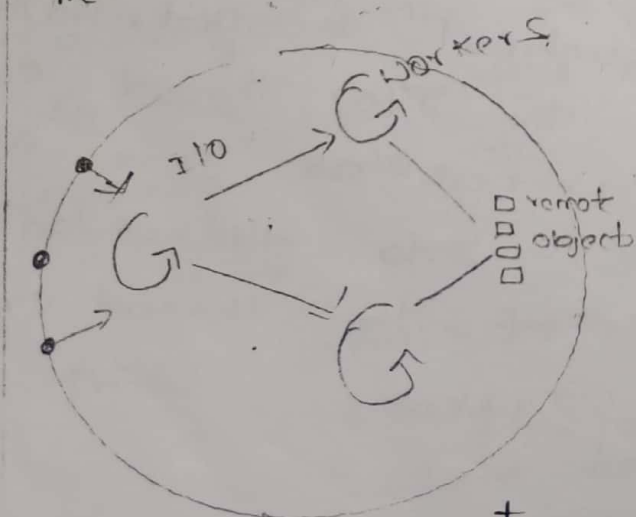 workers
I/O
remot
object